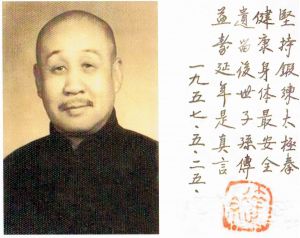 堅持鍛煉太極拳
健康身体最安全
遺留後世子孫傳
益壽延年是真言
一九五七·五·二五·